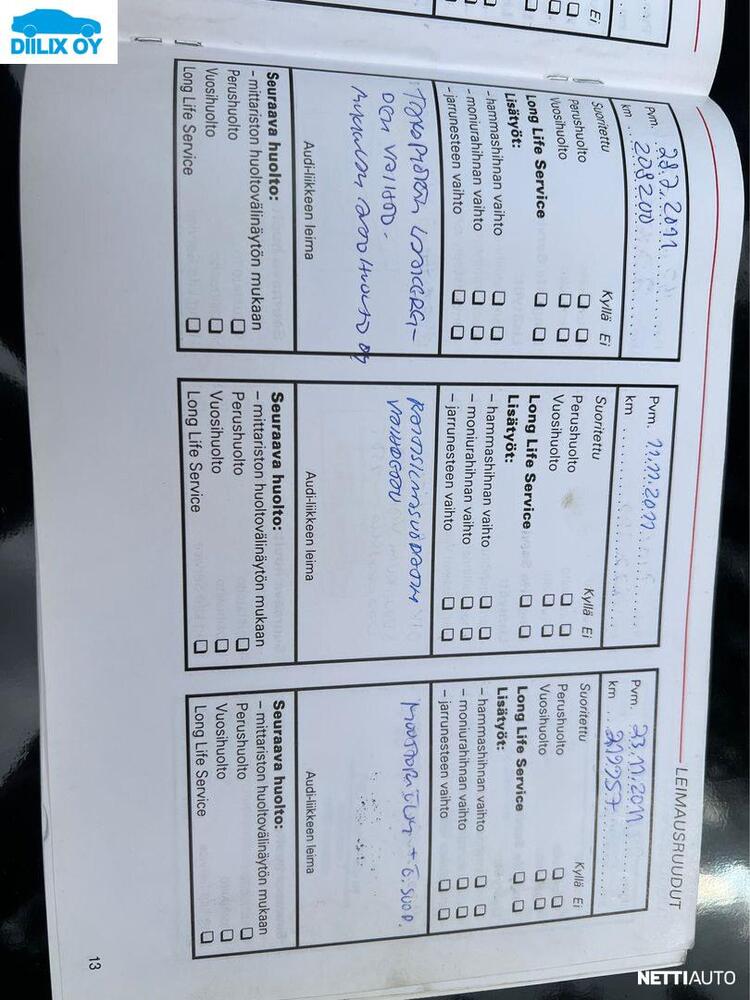 DIILIX OY
Ei
km
LEIMAUSRUUDUT
Pvm. 28.7.2011
km 208200
Suoritettu Kyllä Ei
Perushuolto
Vuosihuolto
Long Life Service
Lisätyöt:
- hammashihnan vaihto
- moniurahihnan vaihto
- jarrunesteen vaihto
DEN VAIHTO.
Audi-liikkeen leima
Seuraava huolto:
- mittariston huoltovälinäytön mukaan
Perushuolto
Vuosihuolto
Long Life Service
Pvm. 11.11.2011
km
Suoritettu Kyllä Ei
Perushuolto
Vuosihuolto
Long Life Service
Lisätyöt:
- hammashihnan vaihto
- moniurahihnan vaihto
- jarrunesteen vaihto
RAITISILMASUODATIN
VAIHDETTU
Audi-liikkeen leima
Seuraava huolto:
- mittariston huoltovälinäytön mukaan
Perushuolto
Vuosihuolto
Long Life Service
Pvm. 23.11.2011
km 219957
Suoritettu Kyllä Ei
Perushuolto
Vuosihuolto
Long Life Service
Lisätyöt:
- hammashihnan vaihto
- moniurahihnan vaihto
- jarrunesteen vaihto
MOOTTORIÖLJY + Ö.SUOD.
Audi-liikkeen leima
Seuraava huolto:
- mittariston huoltovälinäytön mukaan
Perushuolto
Vuosihuolto
Long Life Service
13
NETTIAUTO